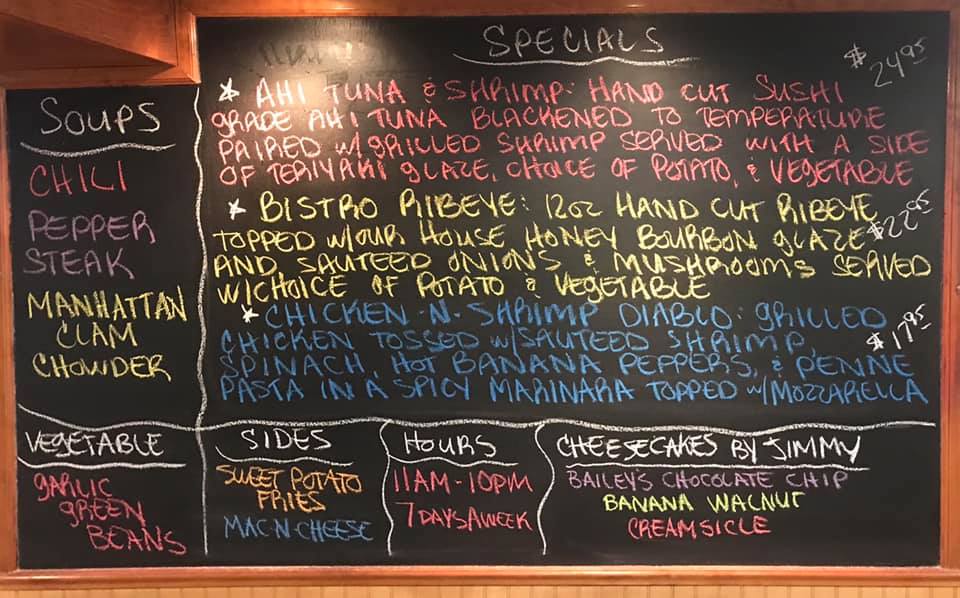 SPECIALS
$24.95
* AHI TUNA & SHRIMP: HAND CUT SUSHI
GRADE AHI TUNA BLACKENED TO TEMPERATURE
PAIRED W/GRILLED SHRIMP SERVED WITH A SIDE
OF TERIYAKI GLAZE, CHOICE OF POTATO, & VEGETABLE
* BISTRO RIBEYE: 12OZ HAND CUT RIBEYE
$22.95
TOPPED W/OUR HOUSE HONEY BOURBON GLAZE
AND, SAUTEED ONIONS & MUSHROOMS SERVED
W/CHOICE OF POTATO & VEGETABLE
* CHICKEN-N-SHRIMP DIABLO: GRILLED
$17.95
CHICKEN TOSSED W/SAUTEED SHRIMP,
SPINACH, HOT BANANA PEPPERS, & PENNE
PASTA IN A SPICY MARINARA TOPPED W/MOZZARELLA
SOUPS
CHILI
PEPPER
STEAK
MANHATTAN
CLAM
CHOWDER
VEGETABLE
GARLIC
GREEN
BEANS
SIDES
SWEET POTATO
FRIES
MAC-N-CHEESE
HOURS
11AM-10PM
7 DAYS A WEEK
CHEESECAKES BY JIMMY
BAILEY'S CHOCOLATE CHIP
BANANA WALNUT
CREAMSICLE